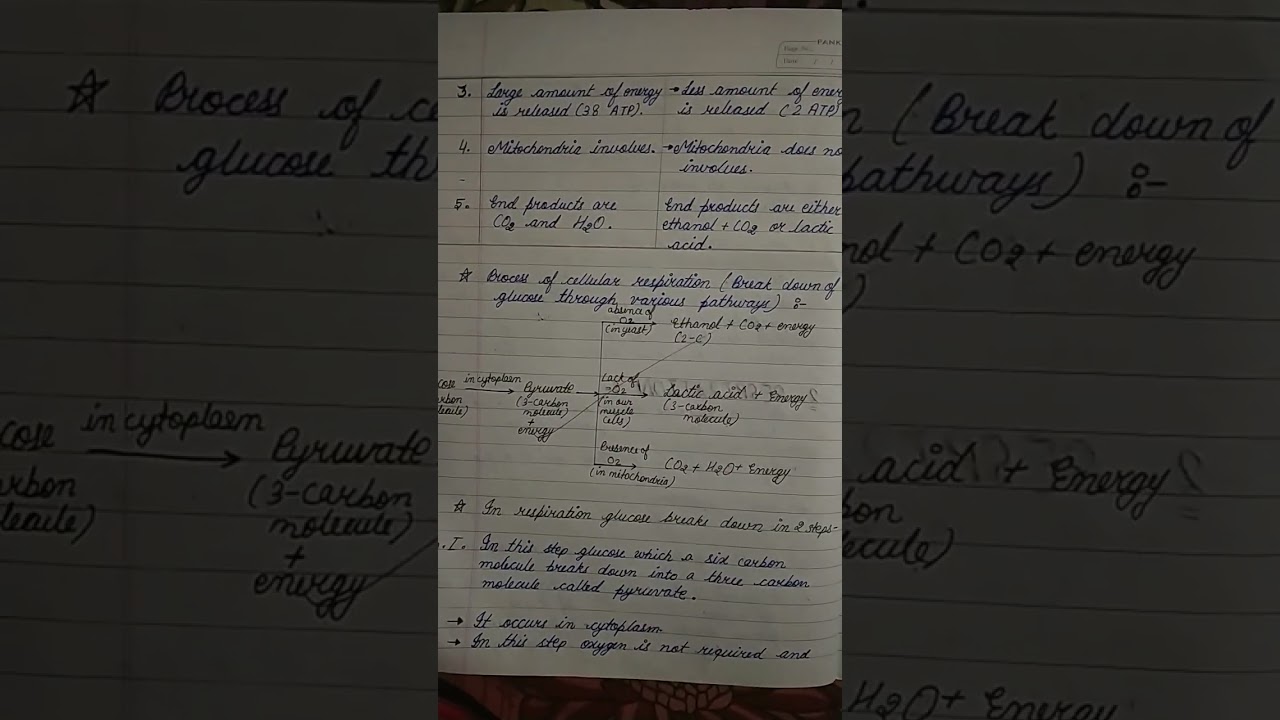 PANK
Page No.
Date / /
3. Large amount of energy → Less amount of ener
is released (38 ATP). is released (2 ATP)
4. Mitochondria involves. → Mitochondria does no
involves.
5. End products are End products are either
CO2 and H2O. ethanol + CO2 or lactic
acid.
☆ Process of cellular respiration (Break down of
glucose through various pathways) :-
absence of
O2
(in yeast)
Ethanol + CO2 + energy
(2-C)
cose
arbon
lecule)
in cytoplasm
Pyruvate
(3-carbon
molecule)
+
energy
Lack of
O2
(in our
muscle
cells)
Lactic acid + Energy
(3-carbon
molecule)
Presence of
O2
(in mitochondria)
CO2 + H2O + Energy
☆ In respiration glucose breaks down in 2 steps-
I. In this step glucose which a six carbon
molecule breaks down into a three carbon
molecule called pyruvate.
→ It occurs in cytoplasm
→ In this step oxygen is not required and